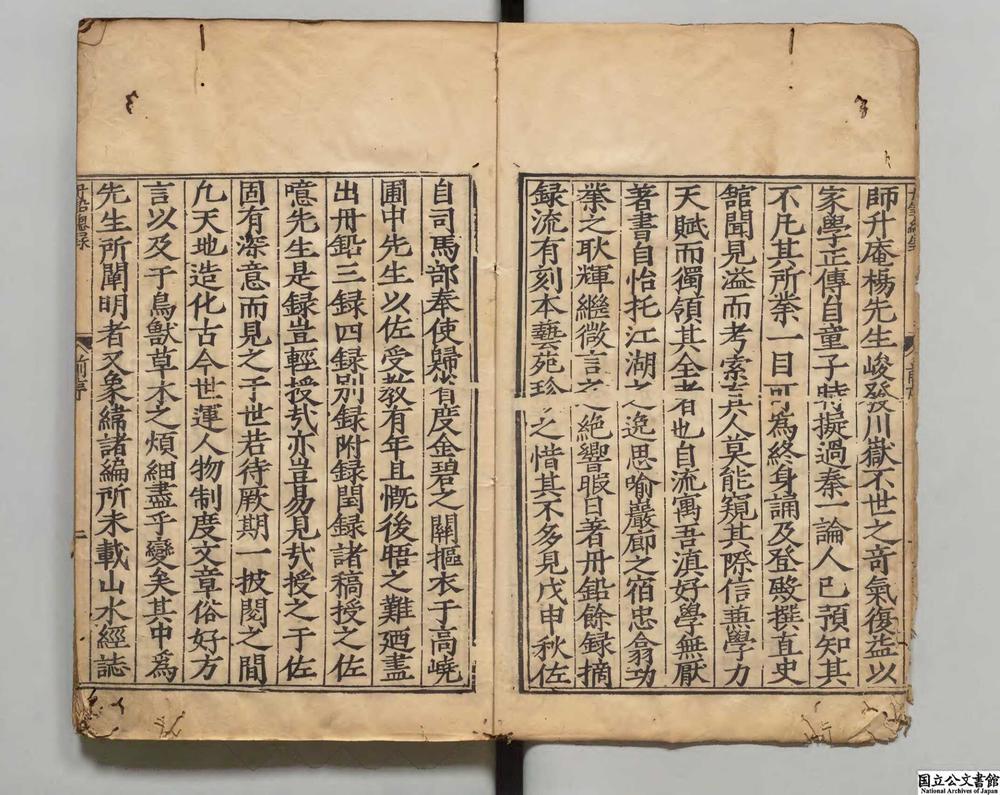 師升庵楊先生峻發川嶽不世之竒氣復益以
家學正傳自童子時擬過秦一論人已預知其
不凢其所挙一目可為終身誦及登斅撰直史
舘聞見溢而考索人莫能窺其際信無學力
天賦而獨領其全者也自流寓吾滇好學無厭
著書自怡托江湖之逸思喻巖廊之宿忠翕功
挙之耿輝繼微言之絕響暇日著丹鉛餘録摘
録流有刻本藝苑珍之惜其不多見戊申秋佐
自司馬部奉使歸省度金碧之關摳衣于高嶢
圃中先生以佐受教有年且慨後晤之難廼盡
出丹鉛三録四録别録附録閏録諸稿授之佐
噫先生是録豈輕授㢤亦豈易見㢤授之于佐
固有深意而見之于世若待厥期一披閱之間
凢天地造化古今世運人物制度文章俗好方
言以及于鳥獸草木之煩細盡乎變矣其中為
先生所闡明者又象緯諸編所未載山水經誌
国立公文書館
National Archives of Japan